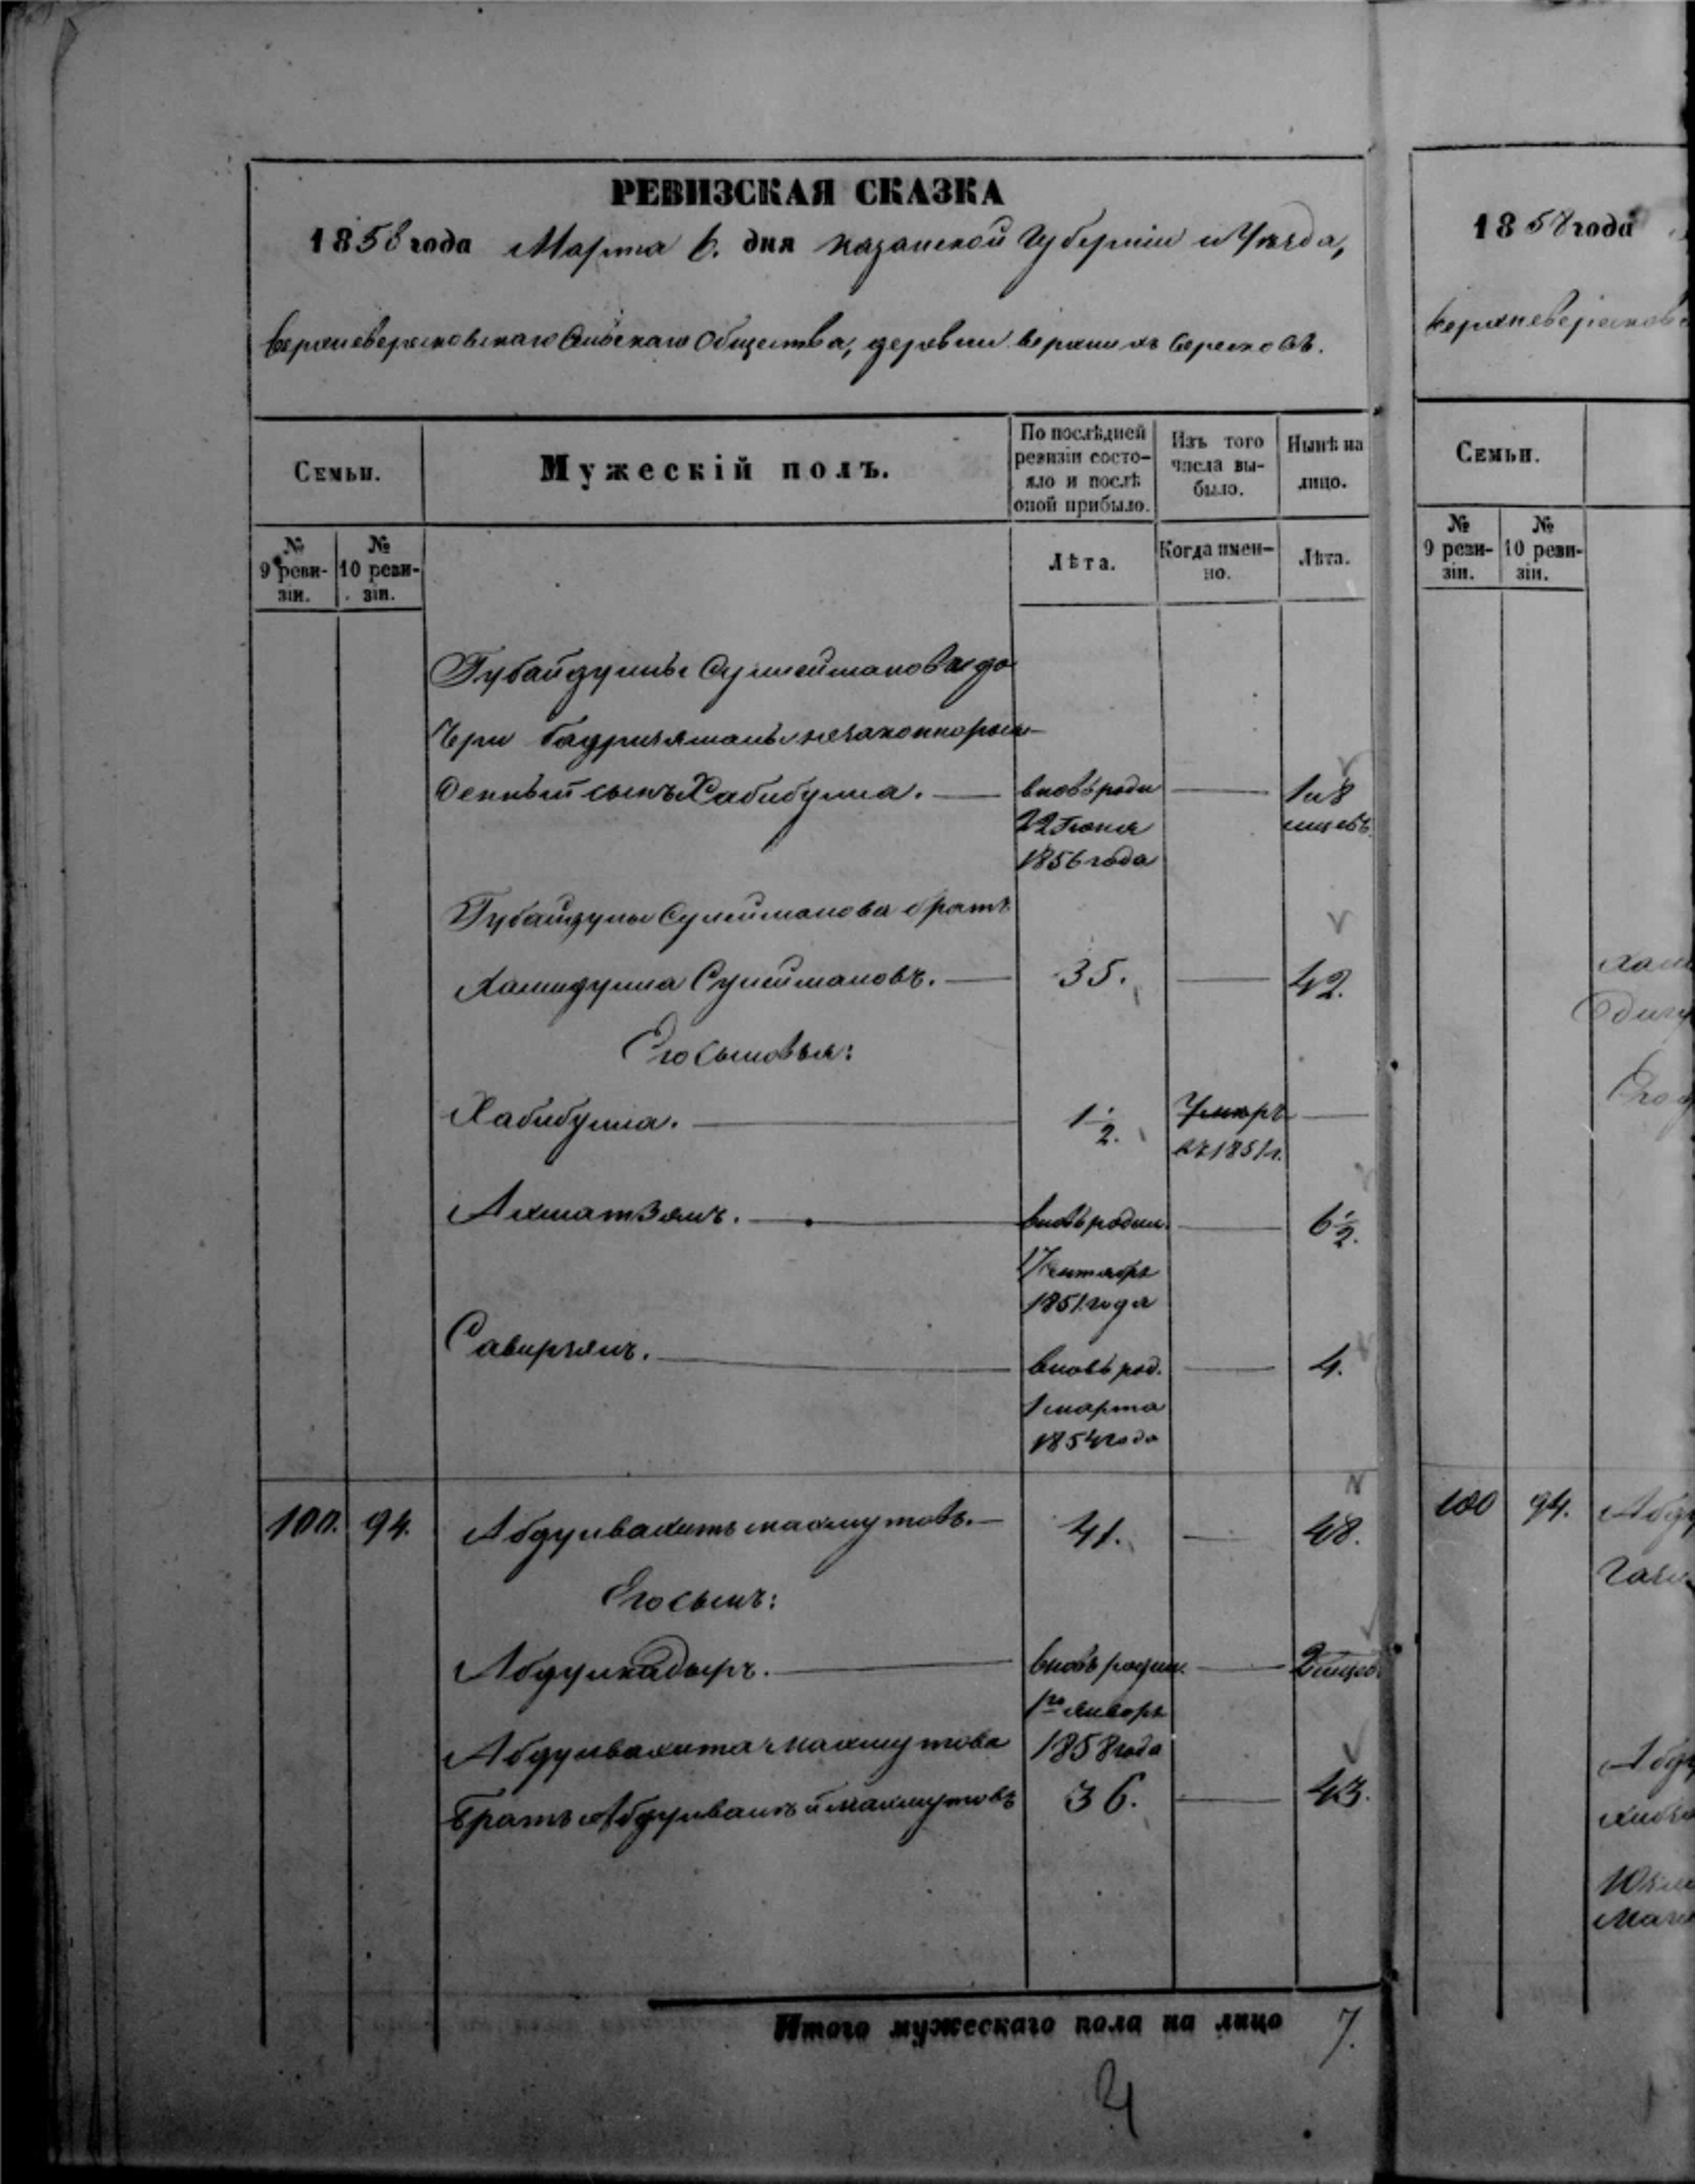 РЕВИЗСКАЯ СКАЗКА
1858 года Марта 6. дня Казанской Губерніи и Уѣзда,
Верхневересковскаго Сельскаго Общества, деревни верхнихъ Вересковъ.
Семьи.
Мужескій полъ.
По послѣдней ревизіи состо-
яло и послѣ
оной прибыло.
Изъ того
числа вы-
было.
Нынѣ на
лицо.
№
9 реви-
зіи.
№
10 реви-
зіи.
Лѣта.
Когда имен-
но.
Лѣта.
Губайдуллы Сулейманова до
чери незаконнорож-
денный сынъ Хабибулла. вновь роди 1 и 8
22 Іюня мцевъ
1856 года
Губайдулы Сулейманова братъ
Хамидулла Сулеймановъ. 35. 42.
Его сыновья:
Хабибулла. 1 1/2. Умеръ
въ 1851 г.
Ахматзянъ. вновь родил. 6 1/2.
17 Сентября
1851 года
Сабирзянъ. вновь род. 4.
1 марта
1854 года
100. 94. Абдулвахитъ Махмутовъ. 41. 48.
Его сынъ:
Абдулкадыръ. вновь родил. 2 мцев.
1го января
Абдулвахита Махмутова 1858 года
братъ Махмутовъ 36. 43.
Итого мужескаго пола на лицо 7.
1858 года
Семьи.
№
9 реви-
зіи.
№
10 реви-
зіи.
100 94.